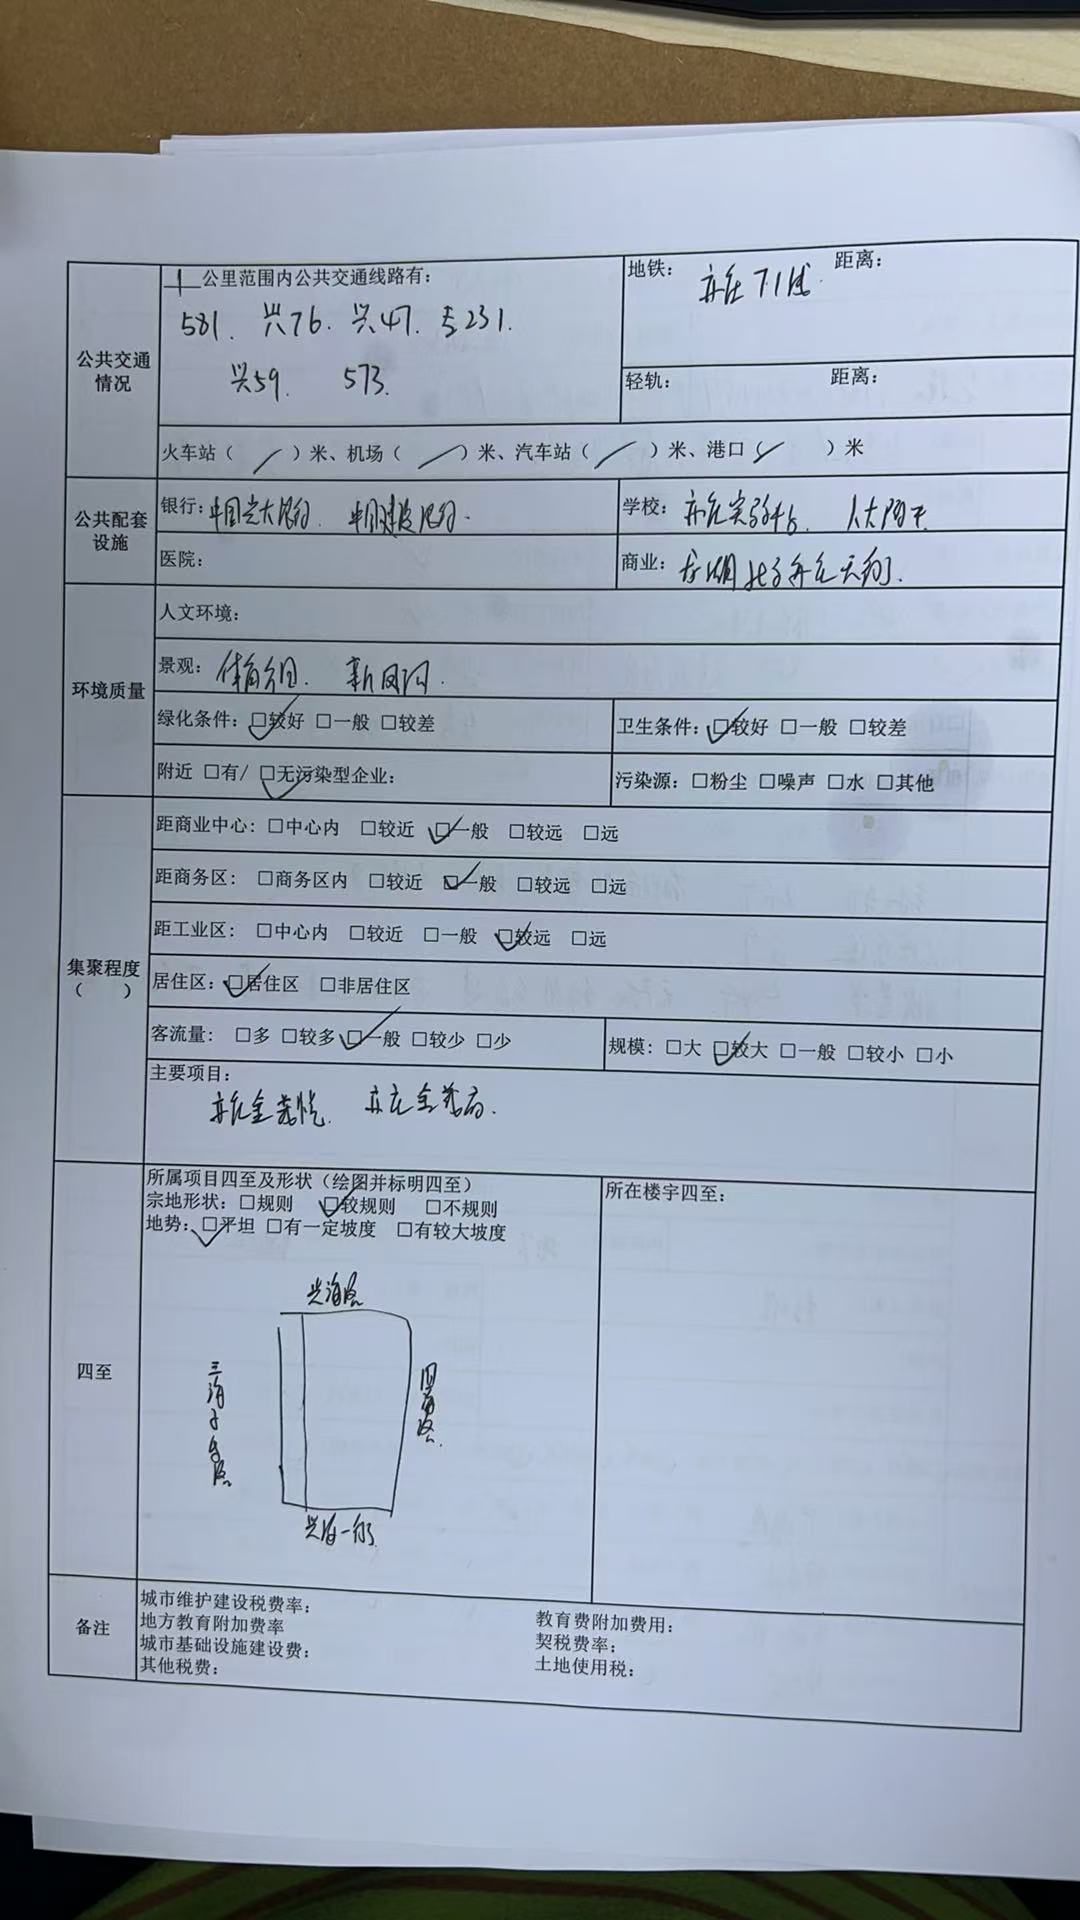 公共交通情况
1 公里范围内公共交通线路有：
581. 兴76. 兴47. 专231.
兴59. 573.
地铁： 距离：
轻轨： 距离：
火车站（ / ）米、机场（ / ）米、汽车站（ / ）米、港口（ / ）米
公共配套设施
银行：中国光大银行. 中国建设银行.
学校：亦庄实验中学. 人大附中
医院：
商业：龙湖北京亦庄天街.
环境质量
人文环境：
景观：体育公园. 新凤河.
绿化条件：☑较好 □一般 □较差
卫生条件：☑较好 □一般 □较差
附近 □有/ ☑无污染型企业：
污染源：□粉尘 □噪声 □水 □其他
集聚程度
（ ）
距商业中心：□中心内 □较近 ☑一般 □较远 □远
距商务区： □商务区内 □较近 ☑一般 □较远 □远
距工业区： □中心内 □较近 □一般 ☑较远 □远
居住区：☑居住区 □非居住区
客流量： □多 □较多 ☑一般 □较少 □少
规模：□大 ☑较大 □一般 □较小 □小
主要项目：
亦庄金茂悦. 亦庄金茂府.
四至
所属项目四至及形状（绘图并标明四至）
宗地形状：□规则 ☑较规则 □不规则
地势：☑平坦 □有一定坡度 □有较大坡度
兴海路
三海子东路
兴海一街
所在楼宇四至：
备注
城市维护建设税费率：
地方教育附加费率
城市基础设施建设费：
其他税费：
教育费附加费用：
契税费率：
土地使用税：